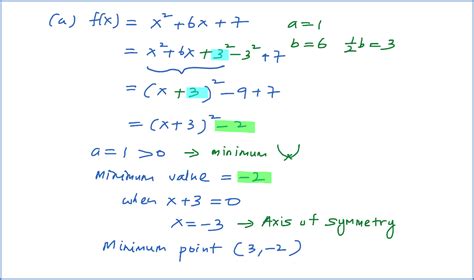 (a) f(x) = x² + 6x + 7 a = 1
b = 6 ½b = 3
= x² + 6x + 3² - 3² + 7
= (x + 3)² - 9 + 7
= (x + 3)² - 2
a = 1 > 0 → minimum
Minimum value = -2
when x + 3 = 0
x = -3 → Axis of symmetry
Minimum point (3, -2)